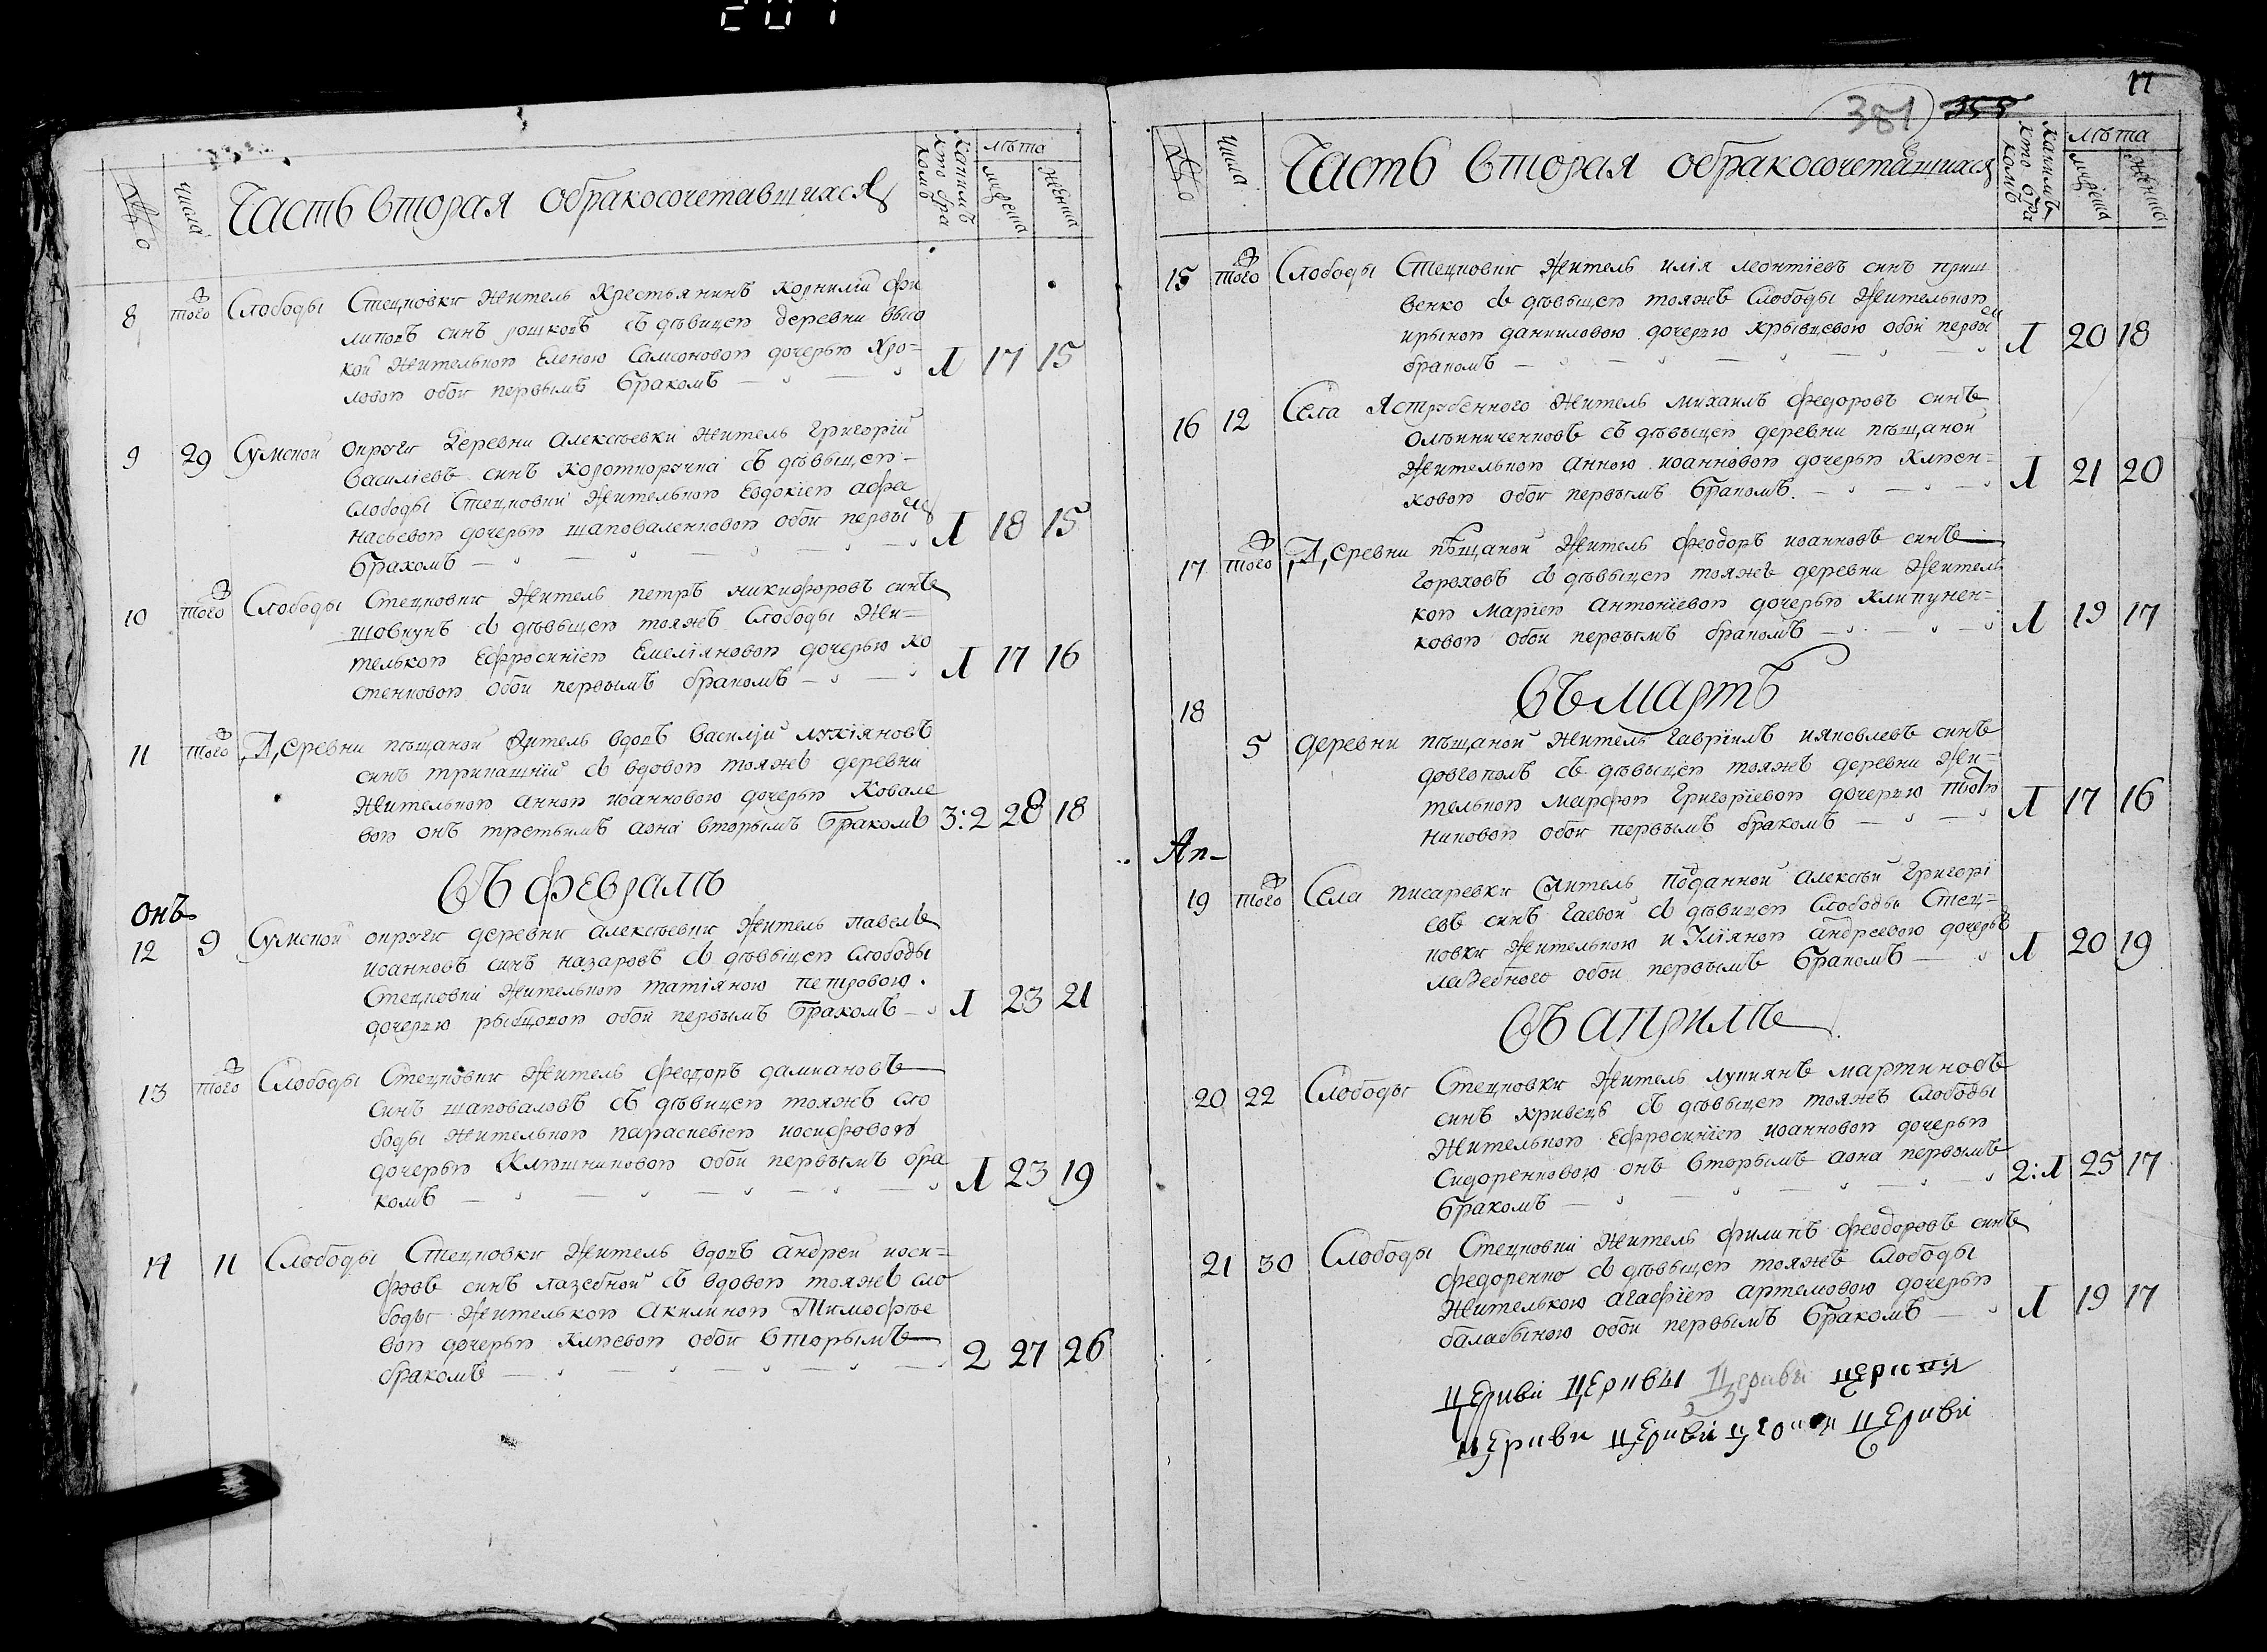 201
№
Числа
Часть вторая обракосочетавшихся
Каиимъ кто бра комъ
лѣта
мужеска
женска
8 тогѡ Слободы Стецковки житель крестьянинъ корнилій фи
липовъ синъ рошковъ съ дѣвицею деревни высо
кой жителькою Еленою Самсоновою дочерью Кро-
ловою обои первымъ бракомъ 1 17 15
9 29 Сумской округи деревни Алексѣевки житель григорій
Василіевъ синъ короткоручка съ дѣвыцею
слободы Стецковки жителькою Евдокіею афа
насьевою дочерью шаповаленковою обои первы
бракомъ 1 18 15
10 того Слободы Стецковки житель петръ никифоровъ синъ
шовкунъ съ дѣвыцею тояжъ слободы жи-
телькою Ефросиніею Емеліяновою дочерью ко
стенковою обои первымъ бракомъ 1 17 16
11 того Деревни пѣщаной житель вдовъ василій лукіяновъ
синъ трипашній съ вдовою тояжъ деревни
жителькою анною иоанновою дочерью Ковале
вою онъ третымъ аона вторымъ бракомъ 3:2 28 18
Въ февралѣ
онъ
12 9 Сумской округи деревни алексѣевки житель павелъ
иоанновъ синъ назаровъ съ дѣвыцею слободы
Стецковки жителькою татіяною петровою
дочерью рыбцовою обои первымъ бракомъ 1 23 21
13 того Слободы Стецковки житель феодоръ даміановъ
синъ шаповаловъ съ дѣвицею тояжъ сло
боды жителькою параскевіею иосифовою
дочерью Клюшниковою обои первымъ бра
комъ 1 23 19
14 11 Слободы Стецковки житель вдовъ андрей иоси-
фовъ синъ лазебной съ вдовою тояжъ сло
боды жителькою Акилиною Тимофѣе
вою дочерью клюевою обои вторымъ
бракомъ 2 27 26
381 355
17
№
Числа
Часть вторая обракосочетавшихся
Каиимъ кто бра комъ
лѣта
мужеска
женска
15 того Слободы Стецковки житель илія леонтіевъ синъ приш
венко съ дѣвыцею тояжъ слободы жителькою
ирыною данииловою дочерью крывцевою обои первы
бракомъ 1 20 18
16 12 Села Яструбенного житель михаилъ федоровъ синъ
Омѣлниченковъ съ дѣвыцею деревни пѣщаной
жителькою анною иоанновою дочерью Клюен-
ковою обои первымъ бракомъ 1 21 20
17 того Деревни пѣщаной житель феодоръ иоанновъ синъ
гороховъ съ дѣвыцею тояжъ деревни житель
кою маріею антоніевою дочерью клипунен-
ковою обои первымъ бракомъ 1 19 17
Въ мартѣ
18
5 деревни пѣщаной житель гавріилъ ияковлевъ синъ
довгополъ съ дѣвыцею тояжъ деревни жи-
телькою марфою григоріевою дочерью плот
никовою обои первымъ бракомъ 1 17 16
Ап-
19 того Села писаревки житель поданной алексѣй григорі
евъ синъ гаевой съ дѣвицею слободы Стец-
ковки жителькою иуліяною андреевою дочерью
лазебного обои первымъ бракомъ 1 20 19
Въ априлѣ
20 22 Слободы Стецковки житель лукиянъ мартиновъ
синъ кривецъ съ дѣвыцею тояжъ слободы
жителькою Ефросиніею иоанновою дочерью
Сидоренковою онъ вторымъ аона первымъ
бракомъ 2:1 25 17
21 30 Слободы Стецковки житель филипъ феодоровъ синъ
федоренко съ дѣвыцею тояжъ слободы
жителькою агафіею артемовою дочерью
балабыною обои первымъ бракомъ 1 19 17
церкви церквы церквы церкви
церкви церкви церкви